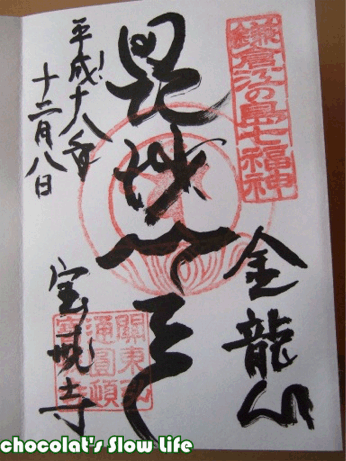 鎌倉江の島七福神
金龍山
毘沙門天
平成十八年
十二月八日
宝戒寺
關東弘
通圓頓
chocolat's Slow Life